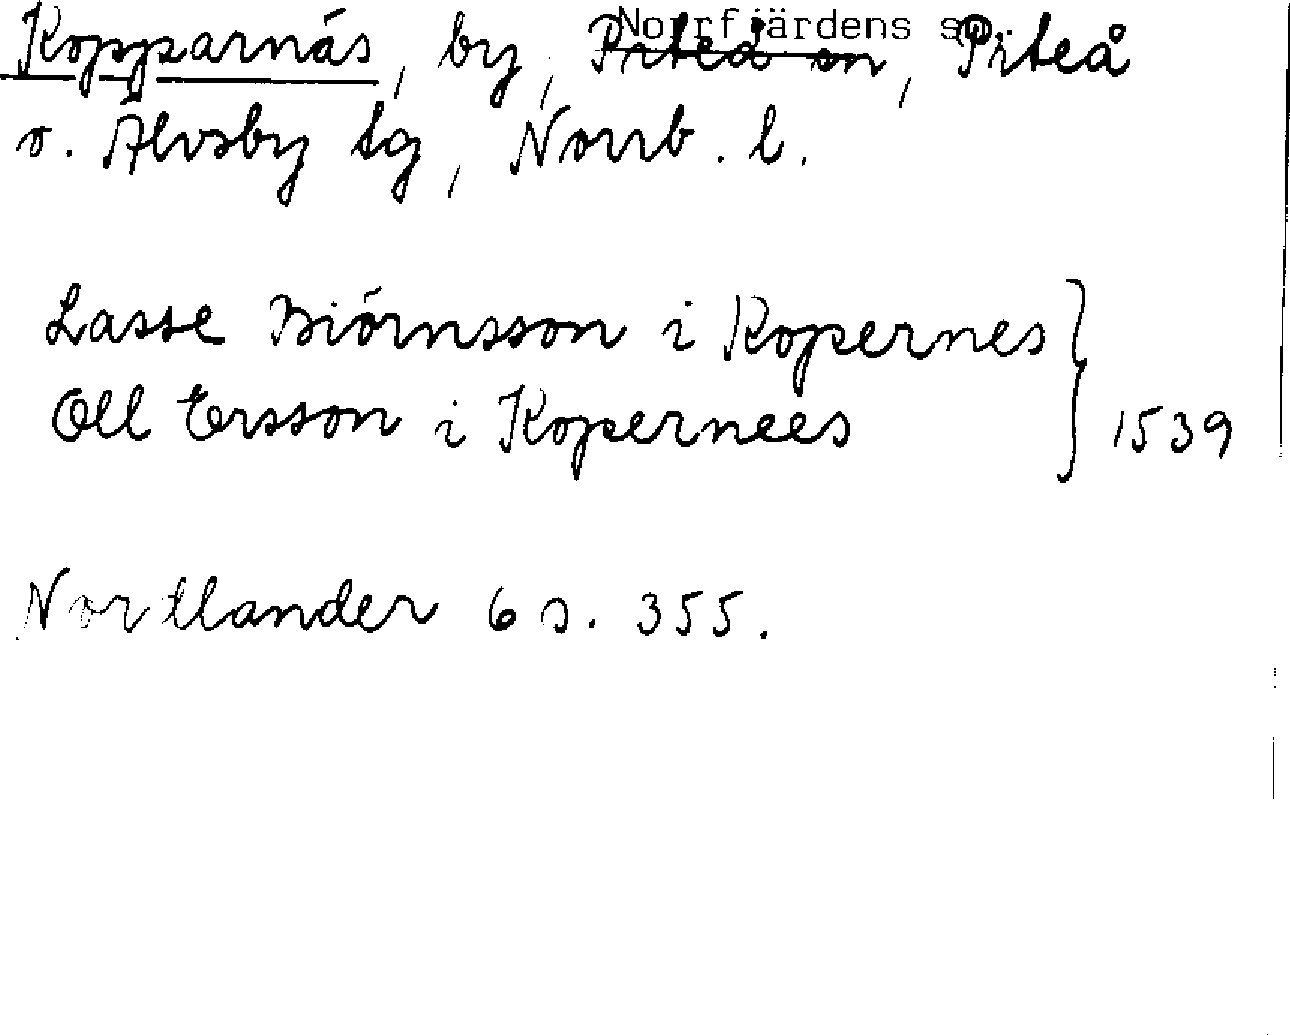 Kopparnäs, by, Norrfjärdens sn, Piteå sn, Piteå
o. Älvsby tg, Norrb. l.
Lasse Biörnsson i Kopernes
Oll Ersson i Kopernees } 1539
Nordlander 6 s. 355.